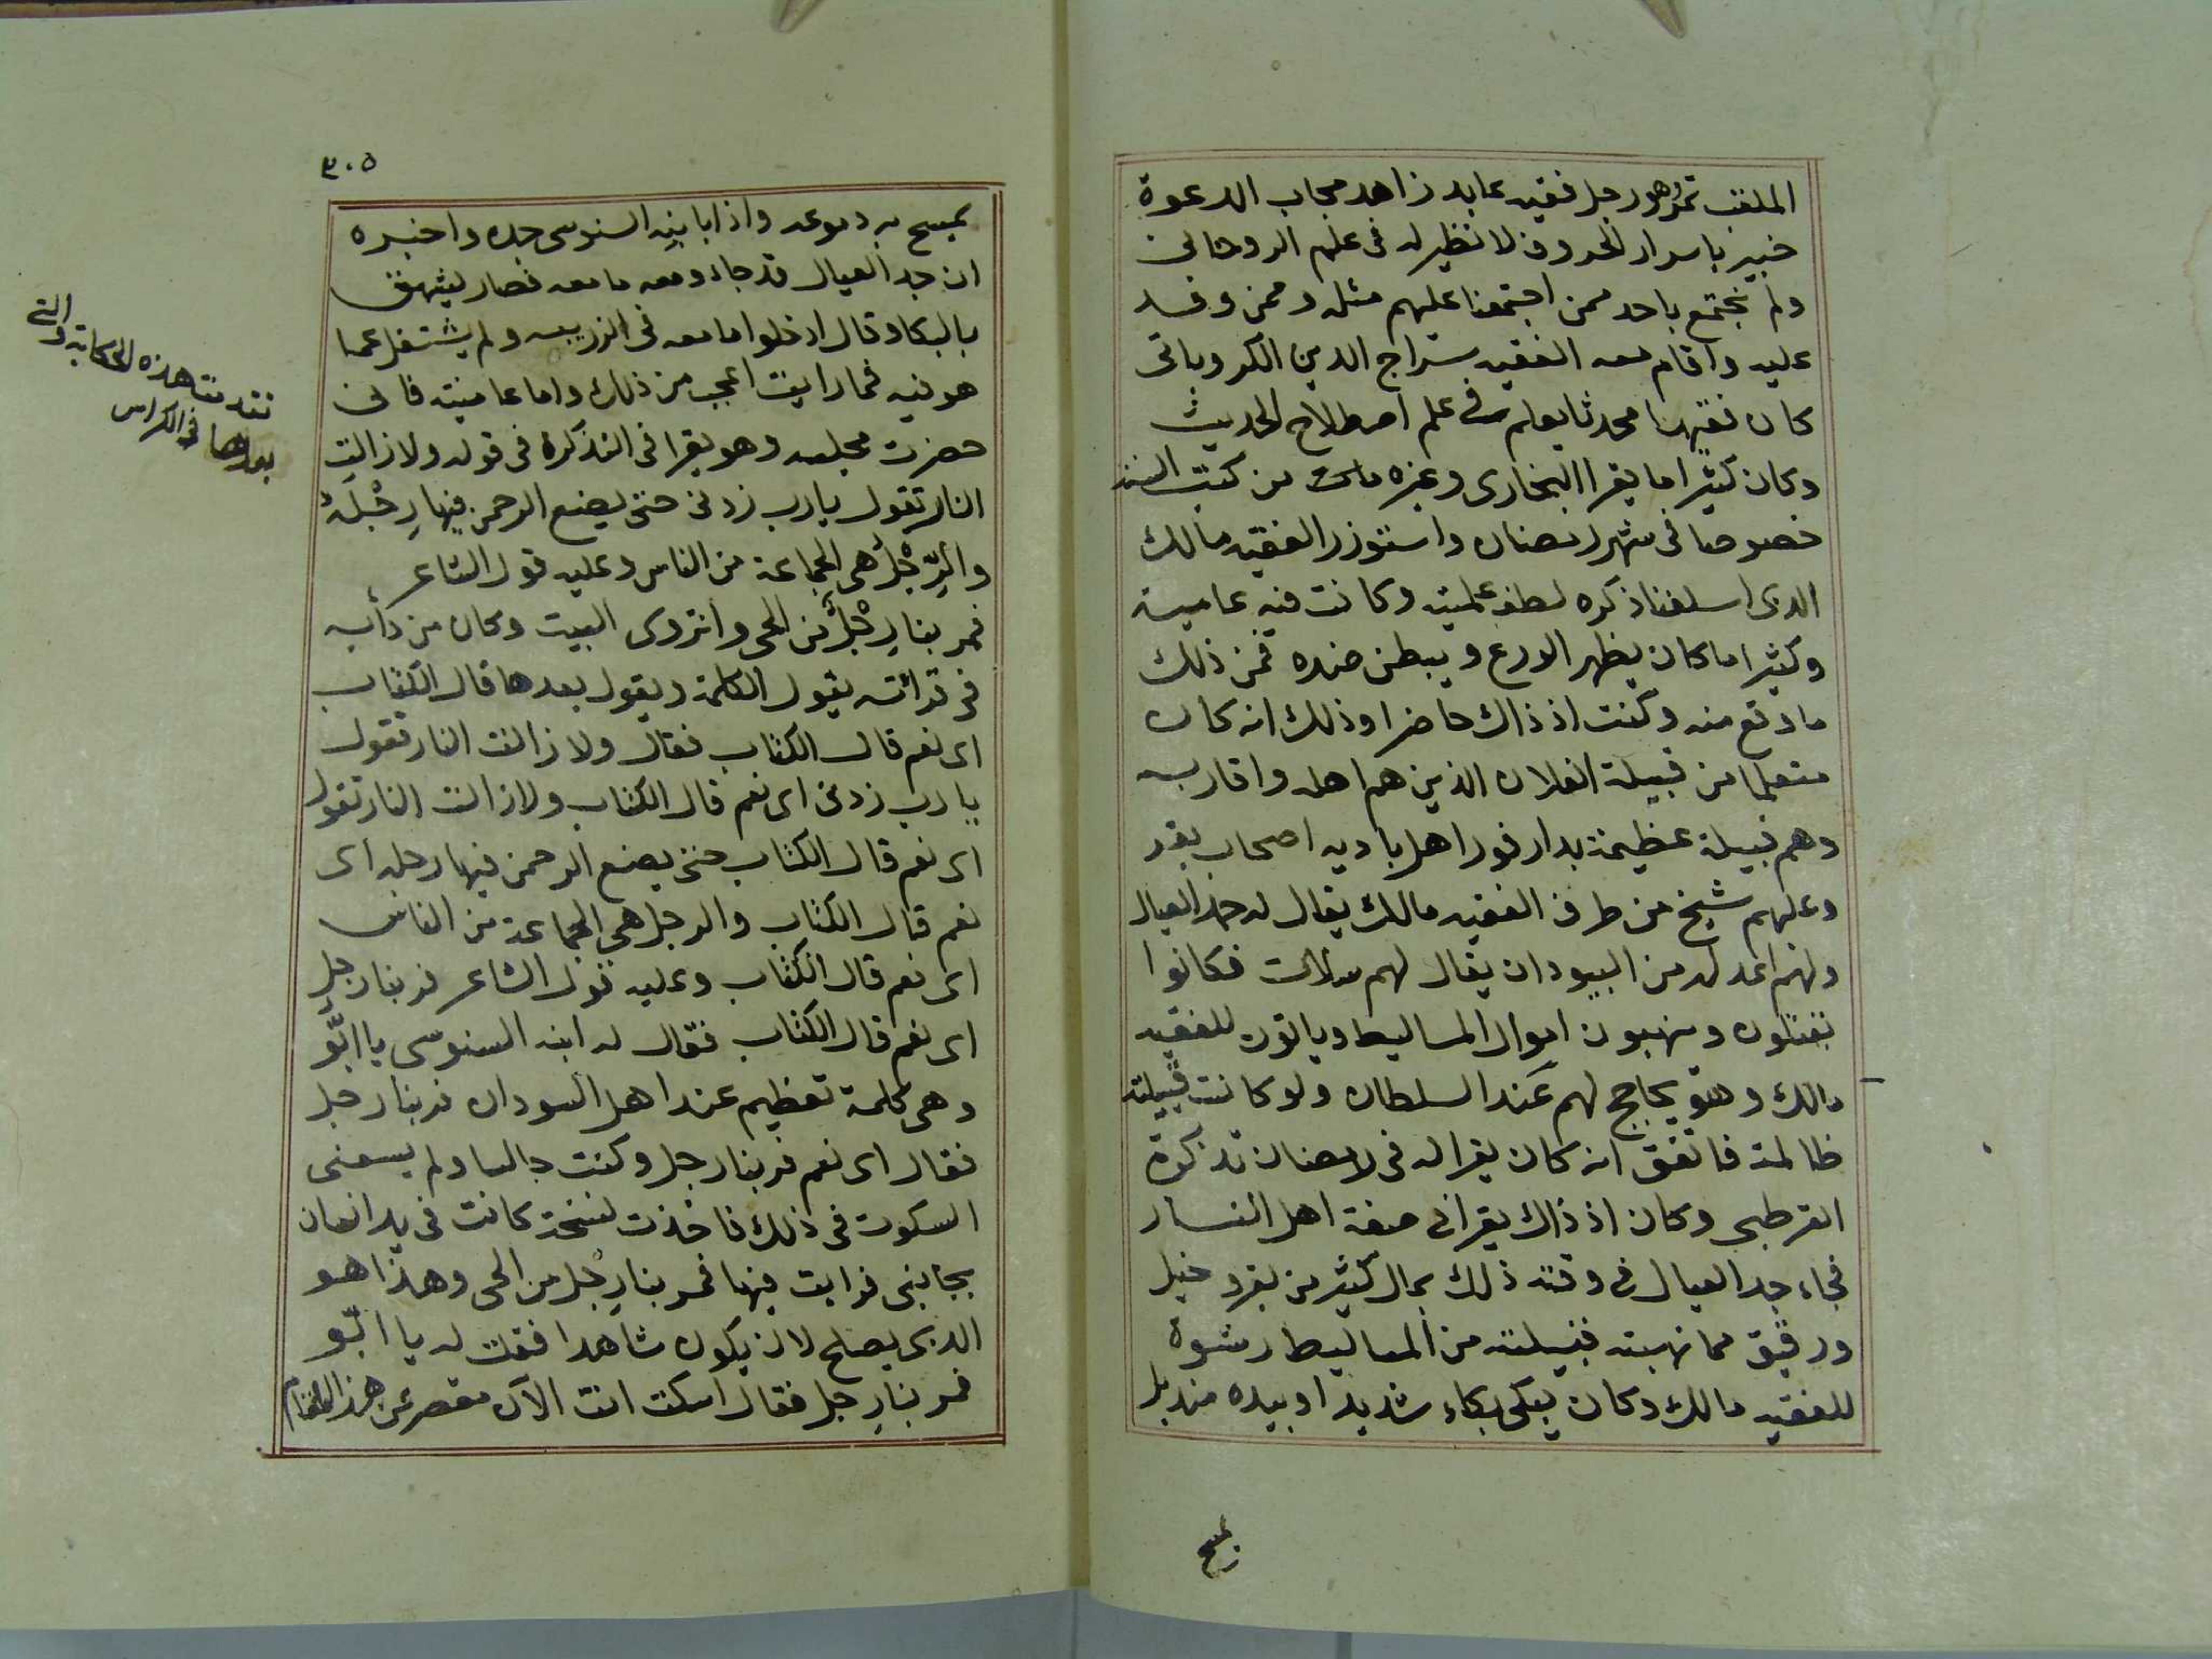 الملقب تمرو هو رجل فقيه عابد زاهد مجاب الدعوة
خبير باسرار الحروف لا نظير له فى علم الروحانى
ولم نجتمع باحد ممن اجتمعنا عليهم مثله وممن وفد
عليه واقام معه الفقيه سراج الدين الكروباتى
كان فقيها محدثا يعلم فى علم اصطلاح الحديث
وكان كثيرا ما يقرا البخارى وغيره من كتب السنة
خصوصا فى شهر رمضان واستوزر الفقيه مالك
الذى اسلفنا ذكره لطف عليته وكانت فيه عامية
وكثيرا ما كان يظهر الورع ويبطن ضده فمن ذلك
ما وقع منه وكنت اذ ذاك حاضرا وذلك انه كان
متعلما من قبيلة الفلان الذين هم اهله واقاربه
وهم قبيلة عظيمة بدارفور اهل باديه اصحاب بقر
وعليهم شيخ من طرف الفقيه مالك يقال له جد العيال
ولهم اعد لهم من السودان يقال لهم مسلات فكانوا
يقتلون وينهبون اموال المساليط وياتون للفقيه
مالك وهو يحاجج لهم عند السلطان ولو كانت قبيلته
ظالمة فاتفق انه كان يقرا له فى رمضان تذكرة
القرطبى وكان اذ ذاك يقرا فى صفة اهل النار
فجاء جد العيال فى وقته ذلك بمال كثير من بقر وخيل
ورقيق مما نهبته قبيلته من المساليط رشوة
للفقيه مالك وكان يبكى بكاء شديدا وبيده منديل
يمسح
٣٠٥
يمسح به دموعه واذا بابنه السنوسى جاءه واخبره
ان جد العيال قد جاء ومعه ما معه فصار يشهق
بالبكا وقال ادخلوا ما معه فى الزريبه ولم يشتغل عما
هو فيه فما رايت اعجب من ذلك واما عاميته فانى
حضرت مجلسه وهو يقرا فى التذكرة فى قوله ولا زالت
النار تقول يا رب زدنى حتى يضع الرحمن فيها رِجْلَهُ
والرِّجْلُ هى الجماعة من الناس وعليه قول الشاعر
فمر بنا رِجْلٌ من الحى وانزوى البيت وكان من دأبه
فى قرائته يقول الكلمة ويقول بعدها قال الكتاب
اى نعم قال الكتاب فقال ولا زالت النار تقول
يا رب زدنى اى نعم قال الكتاب ولا زالت النار تقول
اى نعم قال الكتاب حتى يضع الرحمن فيها رجله اى
نعم قال الكتاب والرجل هى الجماعة من الناس
اى نعم قال الكتاب وعليه قول الشاعر فربنا رجل
اى نعم قال الكتاب فقال له ابنه السنوسى يا ابّو
وهى كلمة تعظيم عند اهل السودان فربنا رجل
فقال اى نعم فربنا رجل وكنت جالسا ولم يسعنى
السكوت فى ذلك فاخذت نسخة كانت فى يد انسان
بجانبى فرايت فيها فمر بنا رِجْل من الحى وهذا هو
الذى يصلح لان يكون شاهدا فقلت له يا ابّو
فمر بنا رجل فقال اسكت انت الآن مقصر عن هذا المقام
تقدمت هذه الحكاية والتى
بعدها فى الكراس